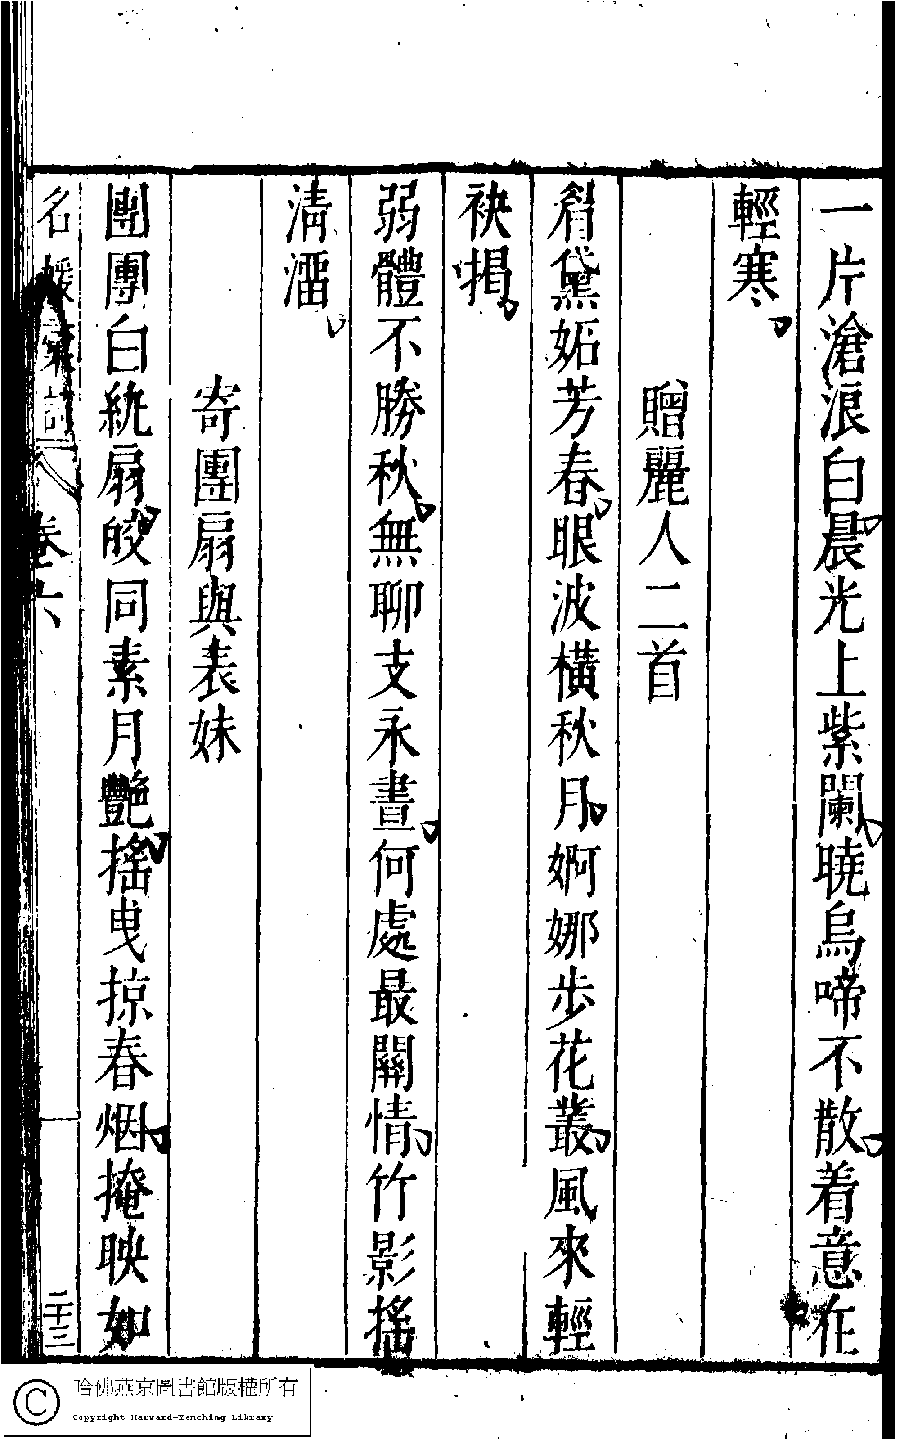 一片滄浪白晨光上紫闌曉烏啼不散着意在
輕寒
贈麗人二首
眉黛妬芳春眼波橫秋月婀娜步花叢風來輕
袂揭
弱體不勝秋無聊支永晝何處最關情竹影搖
清溜
寄團扇與表妹
團團白紈扇皎同素月艷搖曳掠春烟掩映如
名媛彙詩 卷六 二十三
哈佛燕京圖書館版權所有
Copyright Harvard-Yenching Library